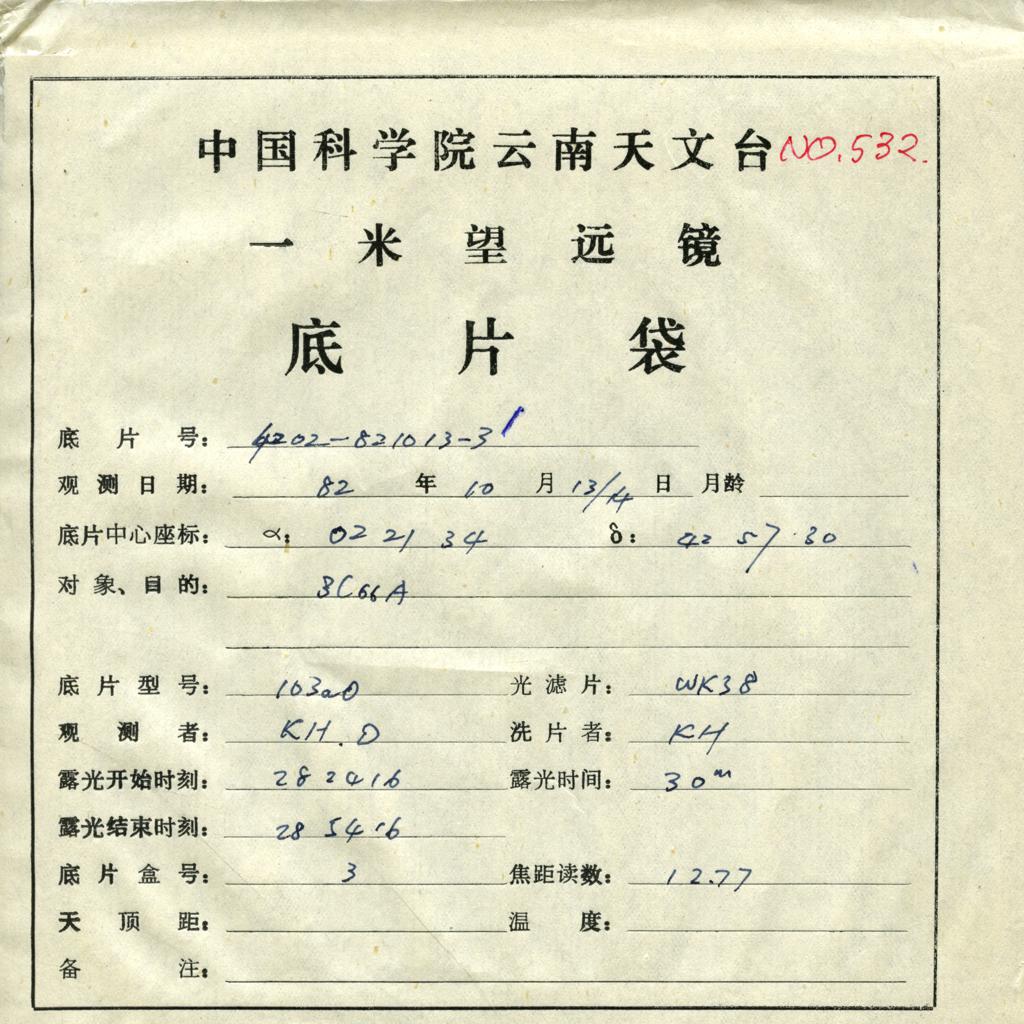 中国科学院云南天文台 NO.532.
一米望远镜
底片袋
底片号： 4202-821013-3
观测日期： 82 年 10 月 13/14 日 月龄
底片中心座标： α： 02 21 34 δ： 42 57.30
对象、目的： 3C66A
底片型号： 103aO 光滤片： WK38
观测者： KH.D 洗片者： KH
露光开始时刻： 28 24 16 露光时间： 30m
露光结束时刻： 28 54 16
底片盒号： 3 焦距读数： 12.77
天顶距： 温度：
备注：